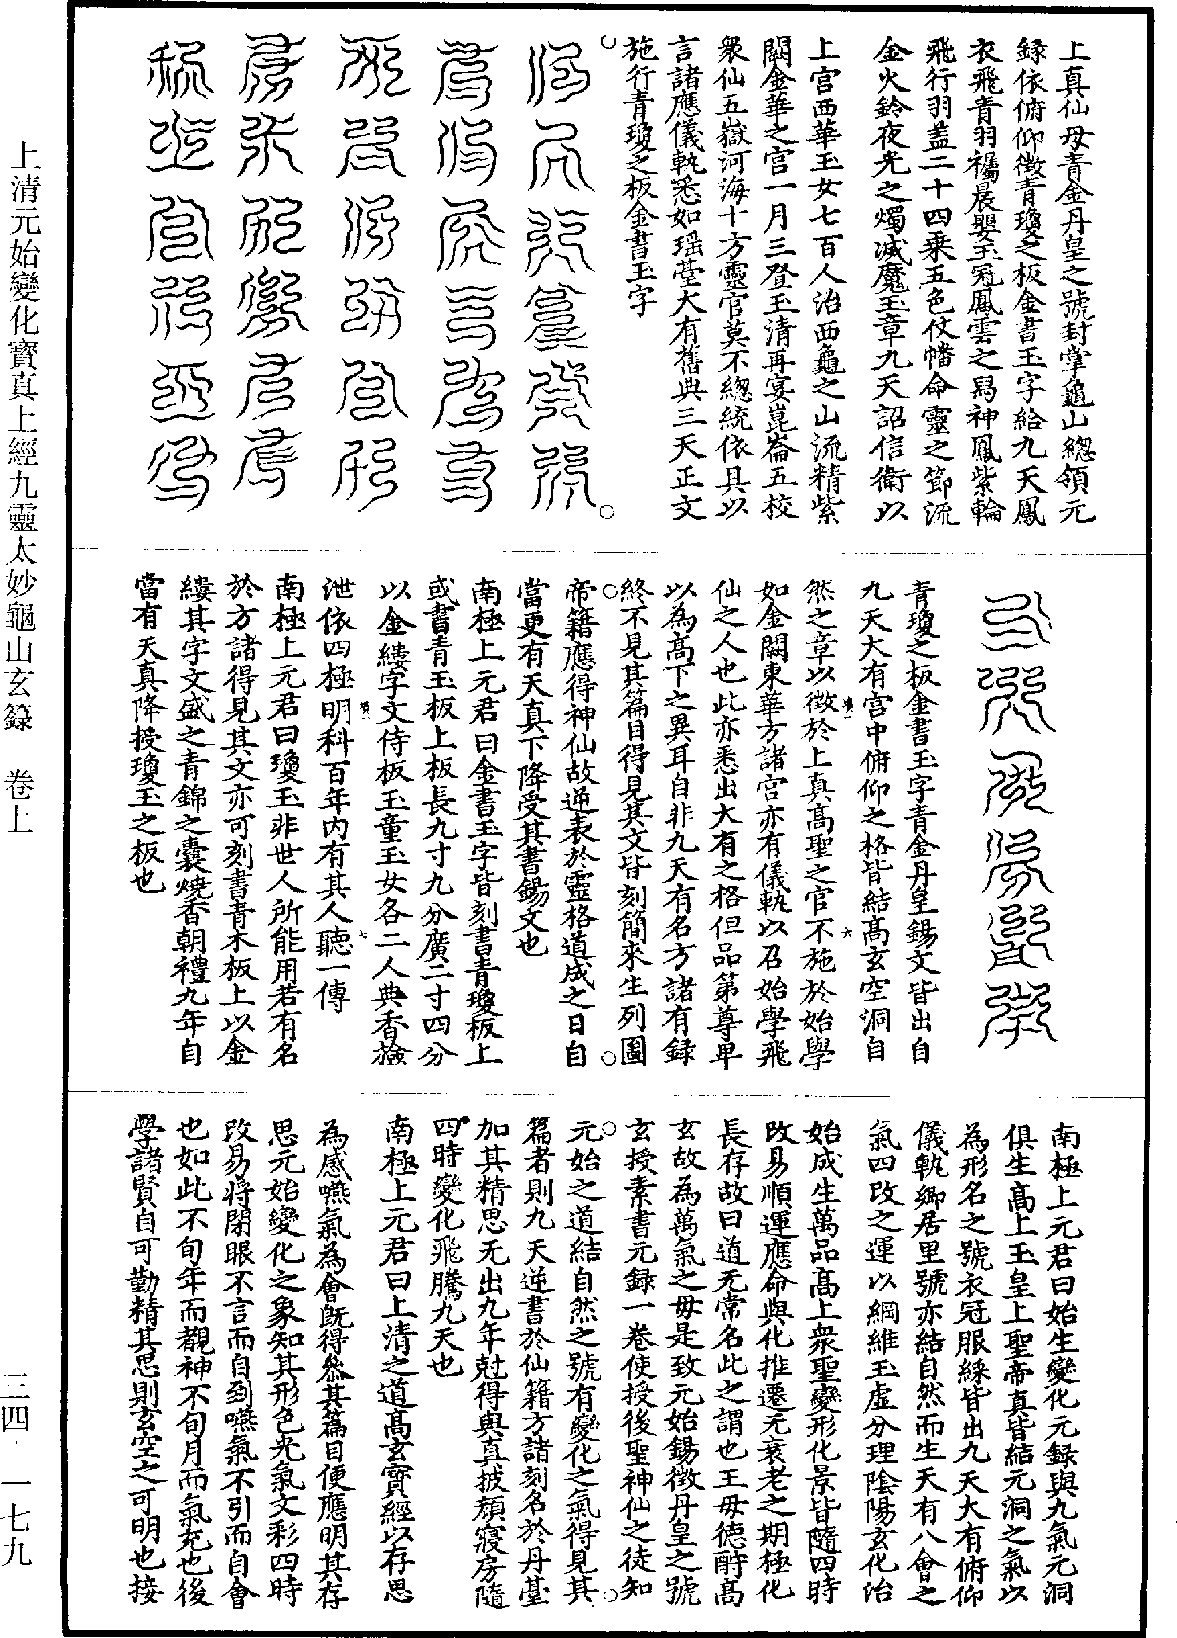 上真仙母青金丹皇之號封掌龜山總領元
録依俯仰徵青瓊之板金書玉字給九天鳳
衣飛青羽襡晨嬰玉冠鳳雲之舄神鳳紫輪
飛行羽盖二十四乗五色仗幡命靈之節流
金火鈴夜光之燭滅魔玉章九天詔信衛以
上宫西華玉女七百人治西龜之山流精紫
闕金華之宫一月三登玉清再宴崑崙五校
衆仙五嶽河海十方靈官莫不總統依具以
言諸應儀軌悉如瑶臺大有舊典三天正文
施行青瓊之板金書玉字
青瓊之板金書玉字青金丹皇錫文皆出自
九天大有宫中俯仰之格皆結高玄空洞自
然之章以徵於上真高聖之官不施於始學
如金闕東華方諸宫亦有儀軌以召始學飛
仙之人也此亦悉出大有之格但品第尊卑
以為高下之異耳自非九天有名方諸有録
終不見其篇目得見其文皆刻簡來生列圖
帝籍應得神仙故逆表於靈格道成之日自
當更有天真下降受其書錫文也
南極上元君曰金書玉字皆刻書青瓊板上
或書青玉板上板長九寸九分廣二寸四分
以金縷字文侍板玉童玉女各二人典香檢
泄依四極明科百年内有其人聽一傳
南極上元君曰瓊玉非世人所能用若有名
於方諸得見其文亦可刻書青木板上以金
縷其字文盛之青錦之囊燒香朝禮九年自
當有天真降授瓊玉之板也
南極上元君曰始生變化元録與九氣元洞
俱生高上玉皇上聖帝真皆結元洞之氣以
為形名之號衣冠服綵皆出九天大有俯仰
儀軌鄉居里號亦結自然而生天有八會之
氣四改之運以綱維玉虚分理陰陽玄化治
始成生萬品高上衆聖變形化景皆隨四時
改易順運應命與化推遷无衰老之期極化
長存故曰道无常名此之謂也王母德酧高
玄故為萬氣之母是致元始錫徵丹皇之號
玄授素書元録一卷使授後聖神仙之徒知
元始之道結自然之號有變化之氣得見其
篇者則九天逆書於仙籍方諸刻名於丹臺
加其精思无出九年尅得與真披顔寢房隨
四時變化飛騰九天也
南極上元君曰上清之道高玄寳經以存思
為感嚥氣為會既得叅其篇目便應明其存
思元始變化之象知其形色光氣文彩四時
改易將閉眼不言而自到嚥氣不引而自會
也如此不旬年而覩神不旬月而氣充也後
學諸賢自可勤精其思則玄空之可明也接
上清元始變化寳真上經九靈太妙龜山玄籙　卷上
三四·一七九